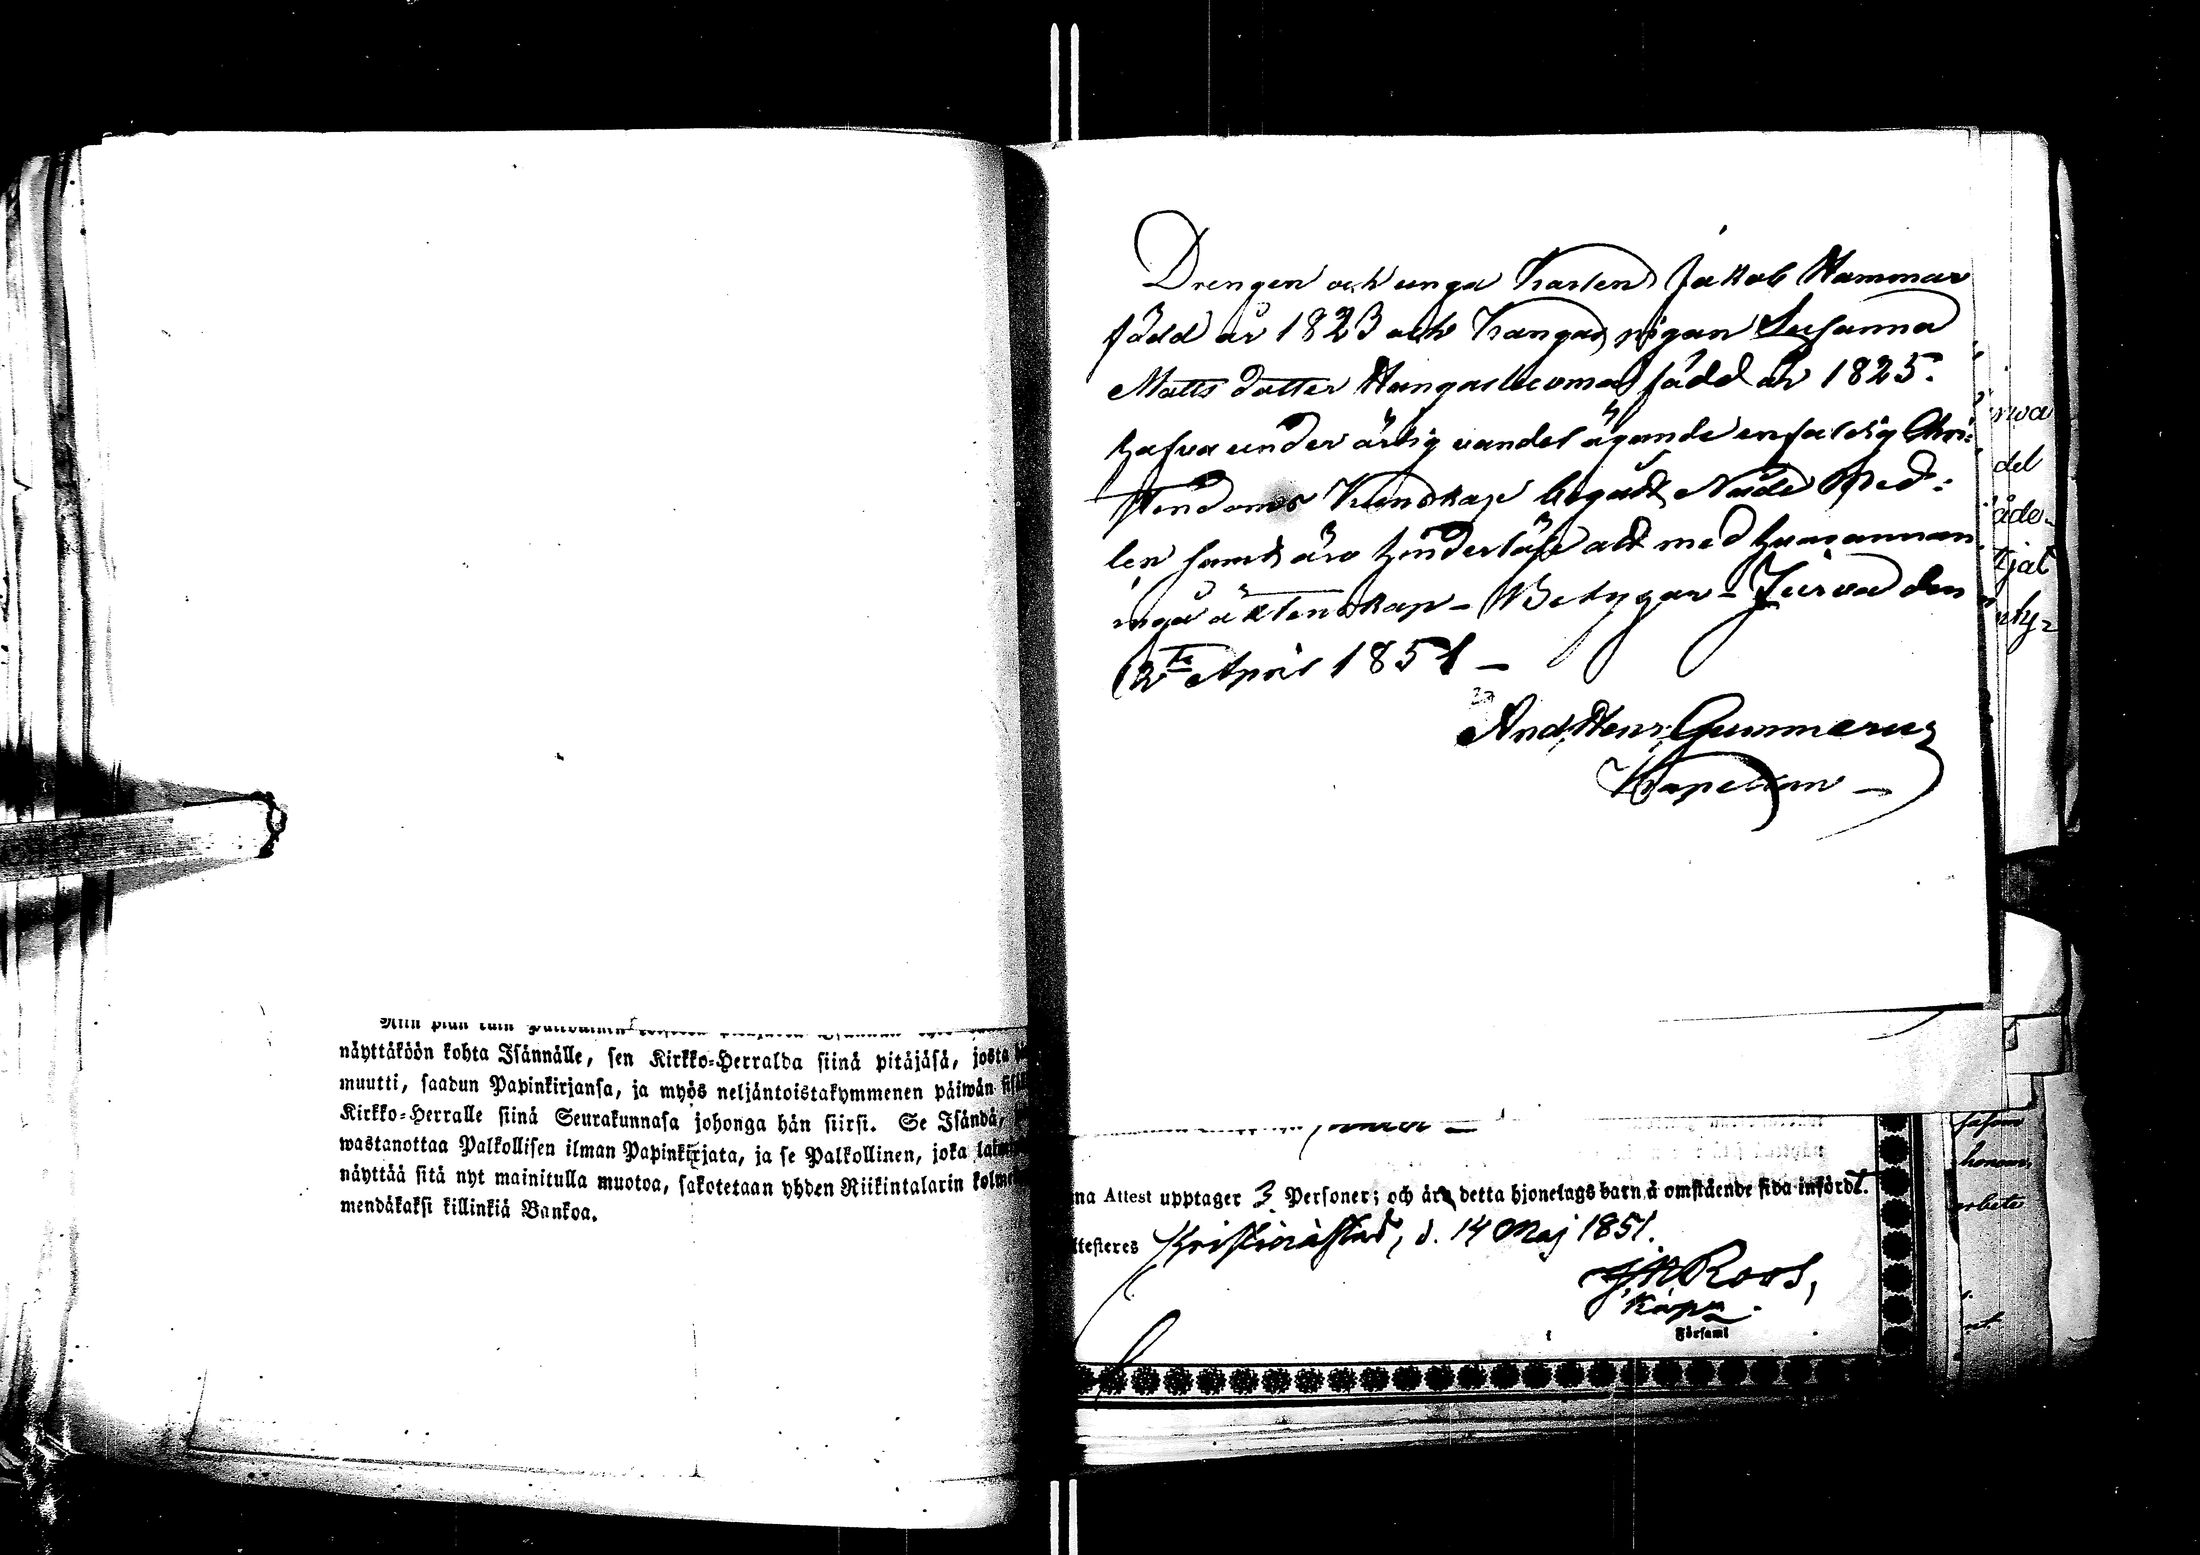 näyttäköön kohta Isännälle, sen Kirkko-Herralda siinä pitäjäsä, josta
muutti, saadun Papinkirjansa, ja myös neljäntoistakymmenen päiwän
Kirkko-Herralle siinä Seurakunnasa johonga hän siirsi. Se Isändä,
wastanottaa Palkollisen ilman Papinkirjata, ja se Palkollinen, joka
näyttää sitä nyt mainitulla muotoa, sakotetaan yhden Riikintalarin
mendäkaksi killinkiä Bankoa.
Drengen och unga Karlen Jakob Hammar
född år 1823 och pigan Susanna
Matts dotter Hangasluoma född år 1825.
hafva under ärlig vandel ägande enfaldig Chri-
stendoms Kundskap begått Nåde Med-
len samt äro hinderlöse att med hvarannan
ingå äktenskap – Betygar – Jurva den
12te April 1851 –
And. Henr. Gummerus
Kapellan –
na Attest upptager 3 Personer; och äro detta hjonelags barn å omstående sida infördt.
ttesteres Kristinæstad, d. 14 Maj 1851.
Roos,
Kapn.
Församl